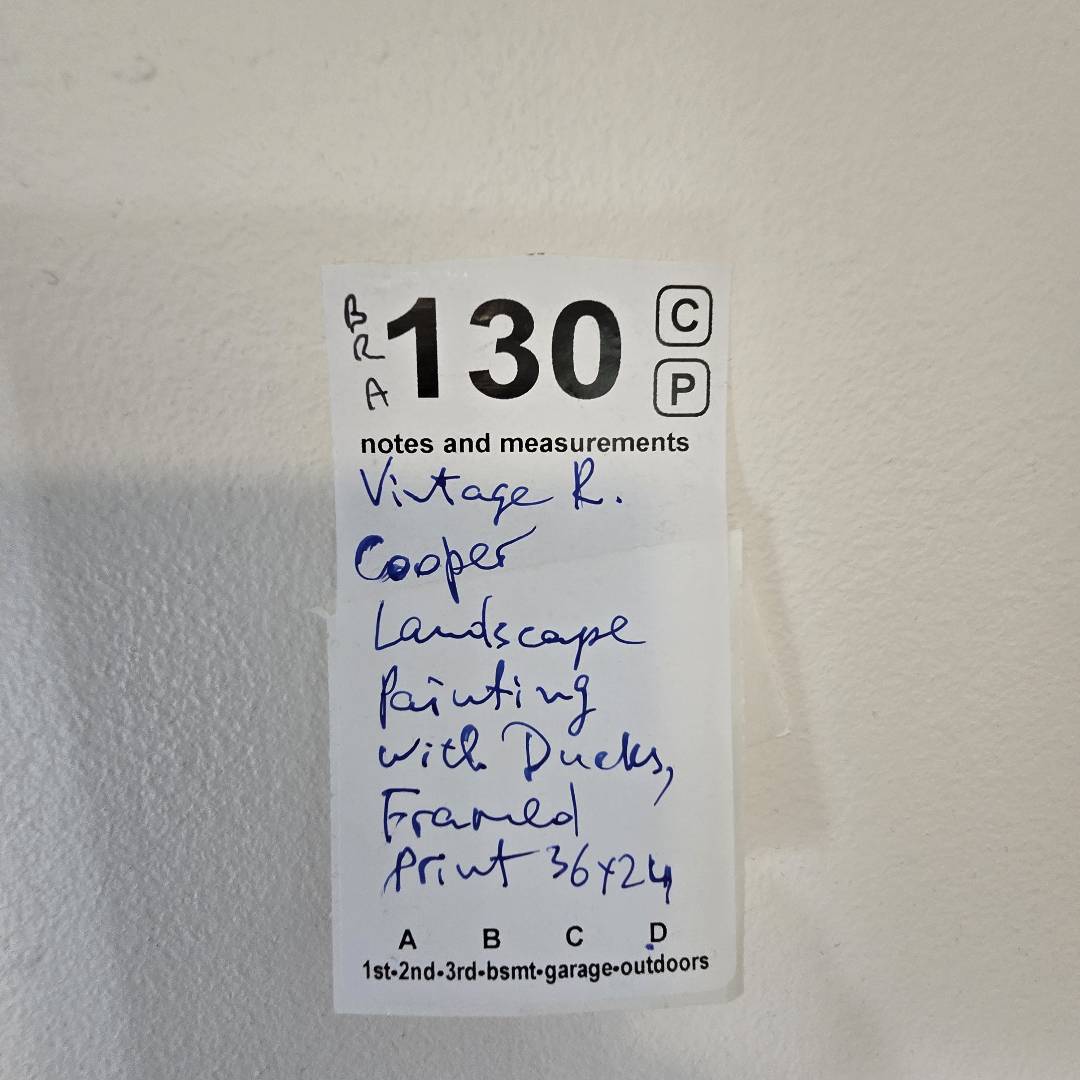 B
R
A
130
C
P
notes and measurements
Vintage R.
Cooper
Landscape
Painting
with Ducks,
Framed
Print 36x24
A B C D
1st-2nd-3rd-bsmt-garage-outdoors